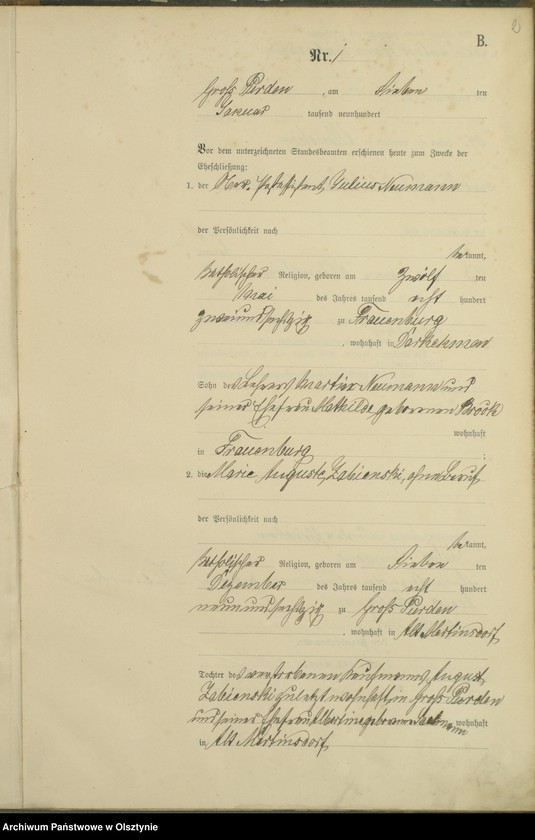 2
B.
Nr. 1
Groß Purden, am Sieben ten
Januar tausend neunhundert
Vor dem unterzeichneten Standesbeamten erschienen heute zum Zwecke der
Eheschließung:
1. der Julius Neumann
der Persönlichkeit nach
bekannt,
katholischer Religion, geboren am zwölf ten
Mai des Jahres tausend acht hundert
zweiundsechszig zu Frauenburg
, wohnhaft in Darkehmen
Sohn des Lehrers Martin Neumann und
seiner Ehefrau Mathilde geborenen Brock
wohnhaft
in Frauenburg
2. die Marie Auguste Zabienski, ohne Beruf
der Persönlichkeit nach
bekannt,
katholischer Religion, geboren am Sieben ten
Dezember des Jahres tausend acht hundert
neunundsechszig zu Groß Purden
, wohnhaft in Alt Martinsdorf
Tochter des verstorbenen Kaufmanns August
Zabienski zuletzt wohnhaft in Groß Purden
und seiner Ehefrau geborenen wohnhaft
in Alt Martinsdorf
Archiwum Państwowe w Olsztynie